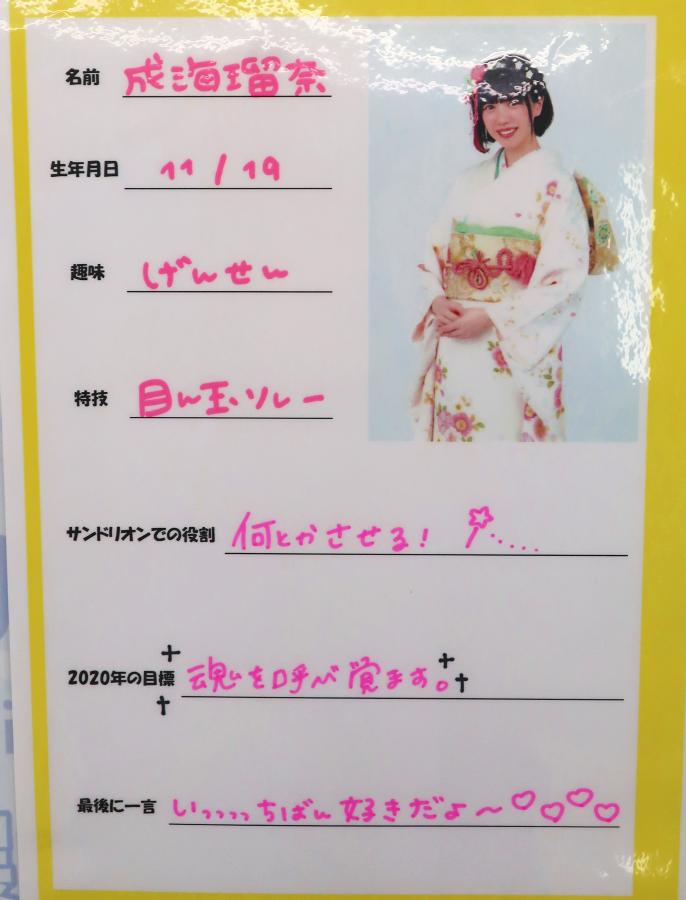 名前 成海瑠奈
生年月日 11/19
趣味 げんせん
特技 目ん玉ソムリエ
サンドリオンでの役割 何とかさせる!
2020年の目標 魂を呼べ覚ます。
最後に一言 いっっっっちばん好きだよ〜♡♡♡♡